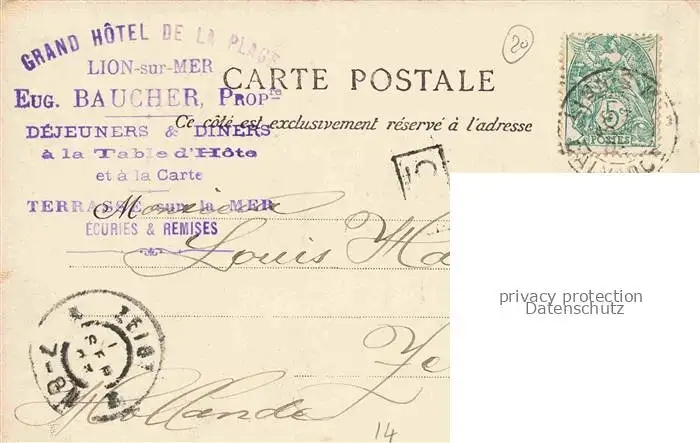 GRAND HÔTEL DE LA PLAGE
LION-sur-MER
EUG. BAUCHER, PROPre
DÉJEUNERS & DINERS
à la Table d'Hôte
et à la Carte
TERRASSE sur la MER
ÉCURIES & REMISES
20
CARTE POSTALE
Ce côté est exclusivement réservé à l'adresse
5
POSTES
Monsieur
Louis
privacy protection
Datenschutz
ZEIST
7-8N
Hollande
14